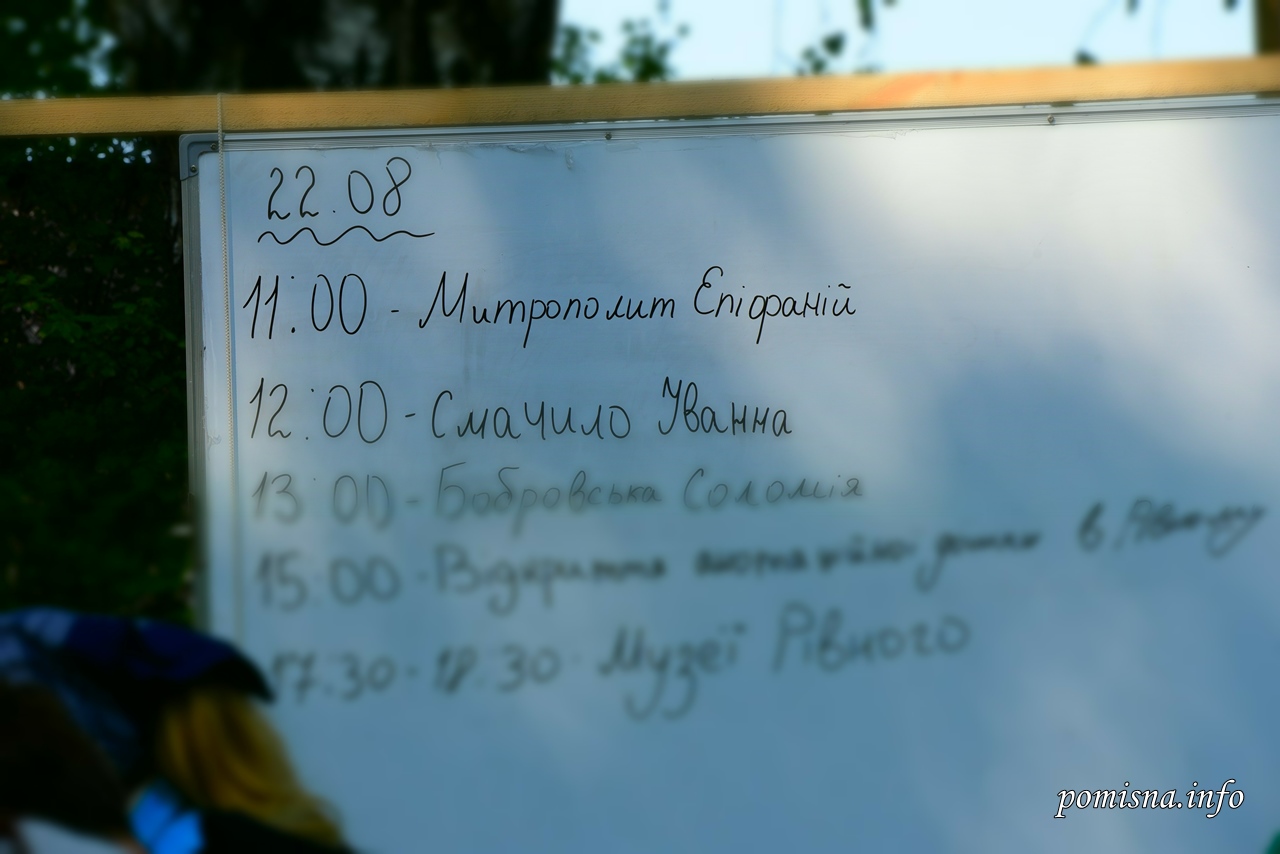 22.08
11:00 - Митрополит Епіфаній
12:00 - Смачило Іванна
13:00 - Бобровська Соломія
15:00 - Відкриття дошки в Рівному
17.30 - 18.30 Музеї Рівного
pomisna.info